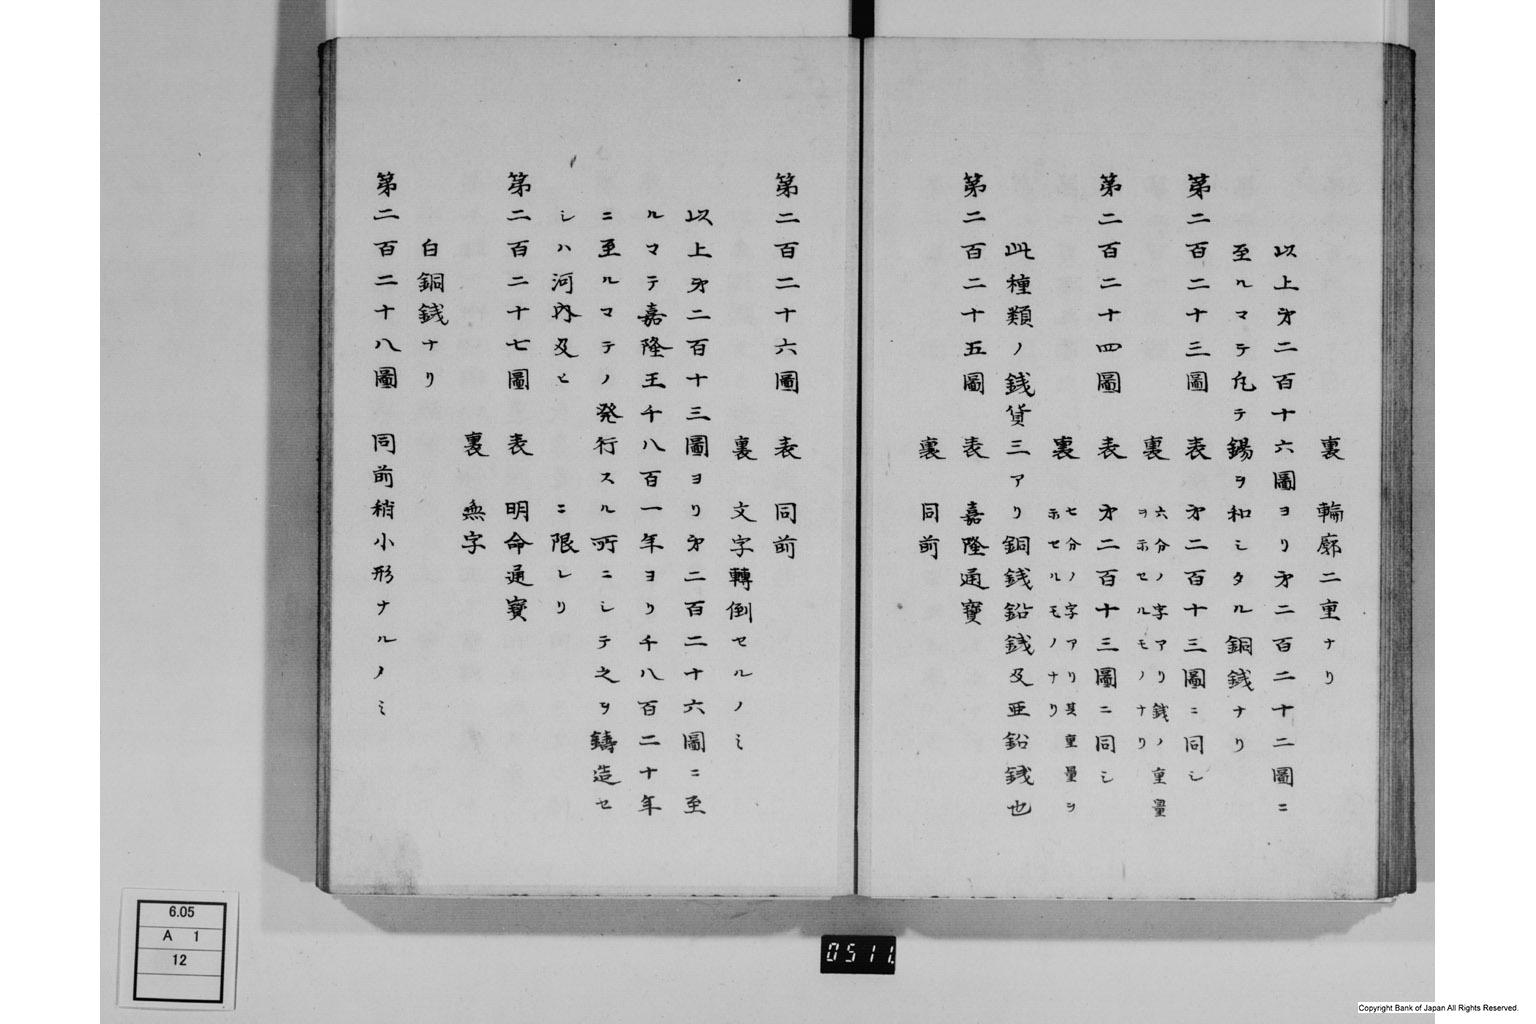 裏　輪廓二重ナリ
以上㐧二百十六圖ヨリ㐧二百二十二圖ニ
至ルマテ凡テ錫ヲ和シタル銅銭ナリ
第二百二十三圖　表　㐧二百十三圖ニ同シ
裏　六分ノ字アリ銭ノ重量
ヲ示セルモノナリ
第二百二十四圖　表　㐧二百十三圖ニ同シ
裏　七分ノ字アリ其重量ヲ
示セルモノナリ
此種類ノ銭貨三アリ銅銭鉛銭及亜鉛銭也
第二百二十五圖　表　嘉隆通寶
裏　同前
第二百二十六圖　表　同前
裏　文字轉倒セルノミ
以上㐧二百十三圖ヨリ㐧二百二十六圖ニ至
ルマテ嘉隆王千八百一年ヨリ千八百二十年
ニ至ルマテノ発行スル所ニシテ之ヲ鑄造セ
シハ河内及ヒ　ニ限レリ
第二百二十七圖　表　明命通寳
裏　無字
白銅銭ナリ
第二百二十八圖　同前稍小形ナルノミ
6.05
A 1
12
0511.
Copyright Bank of Japan All Rights Reserved.